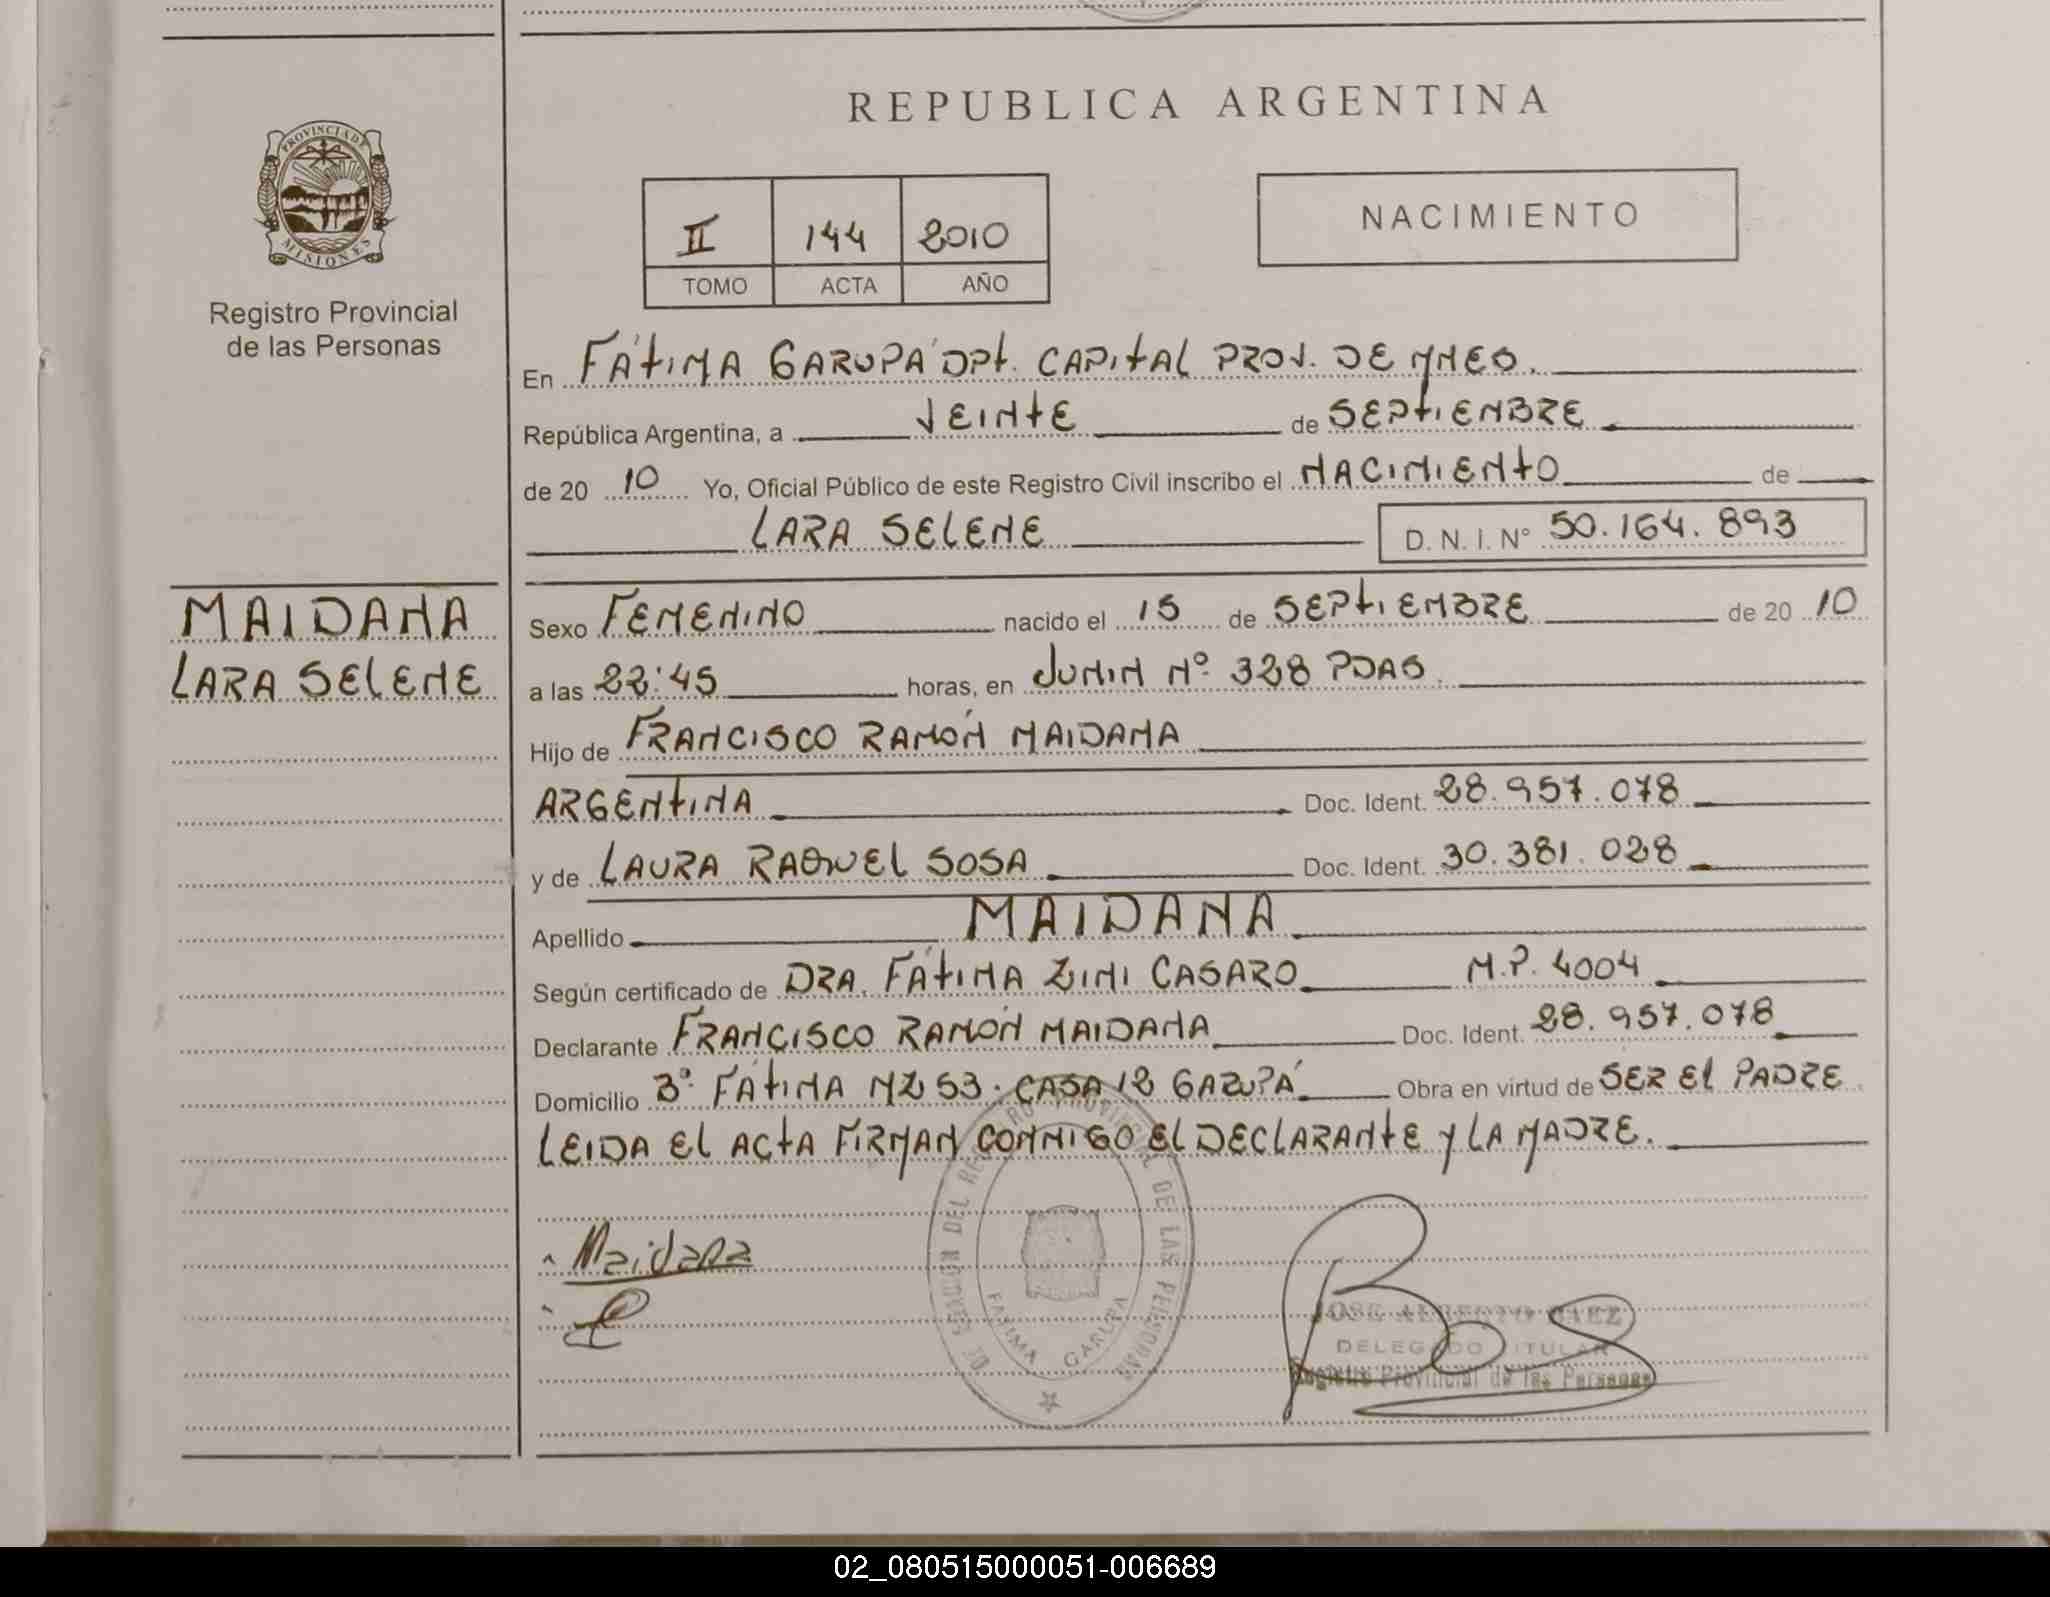 REPUBLICA ARGENTINA
PROVINCIA DE
MISIONES
Registro Provincial
de las Personas
II 144 2010
TOMO ACTA AÑO
NACIMIENTO
En FÁTIMA GARUPÁ DPt. CAPITAL PROV. DE MNES.
República Argentina, a VEINTE de SEPTIEMBRE
de 20 10 Yo, Oficial Público de este Registro Civil inscribo el NACIMIENTO de
LARA SELENE D. N. I. Nº 50.164.893
MAIDANA
LARA SELENE
Sexo FEMENINO nacido el 15 de SEPTIEMBRE de 20 10
a las 22:45 horas, en JUNIN Nº 328 PDAS.
Hijo de FRANCISCO RAMÓN MAIDANA
ARGENTINA Doc. Ident. 28.957.078
y de LAURA RAQUEL SOSA Doc. Ident. 30.381.028
Apellido MAIDANA
Según certificado de DRA. FÁTIMA ZINI CASARO M.P. 4004
Declarante FRANCISCO RAMÓN MAIDANA Doc. Ident. 28.957.078
Domicilio Bº FÁTIMA MZ 53. CASA 12 GARUPÁ Obra en virtud de SER EL PADRE
LEIDA EL ACTA FIRMAN CONMIGO EL DECLARANTE Y LA MADRE.
Maidana
DELEGACION DEL REGISTRO PROVINCIAL DE LAS PERSONAS
FATIMA GARUPA
JOSE ALBERTO BAEZ
DELEGADO TITULAR
Registro Provincial de las Personas
02_080515000051-006689